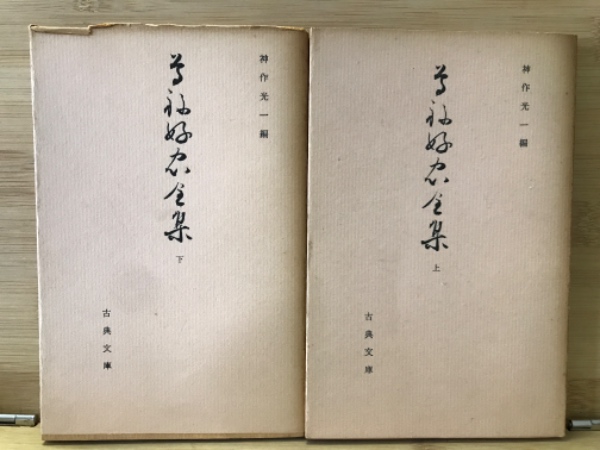 神作光一編
曽祢好忠全集
上
古典文庫
神作光一編
曽祢好忠全集
下
古典文庫